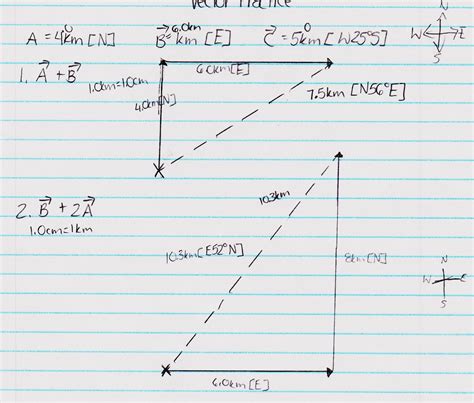 Vector Practice
A = 4.0km [N]   B = 6.0km [E]   C = 5.0km [W25°S]
N
W E
S
1. A + B
1.0km=1.0cm
6.0km[E]
4.0km[N]
7.5km [N56°E]
2. B + 2A
1.0cm=1km
10.3km
10.3km[E52°N]
8km [N]
N
W E
S
6.0km [E]